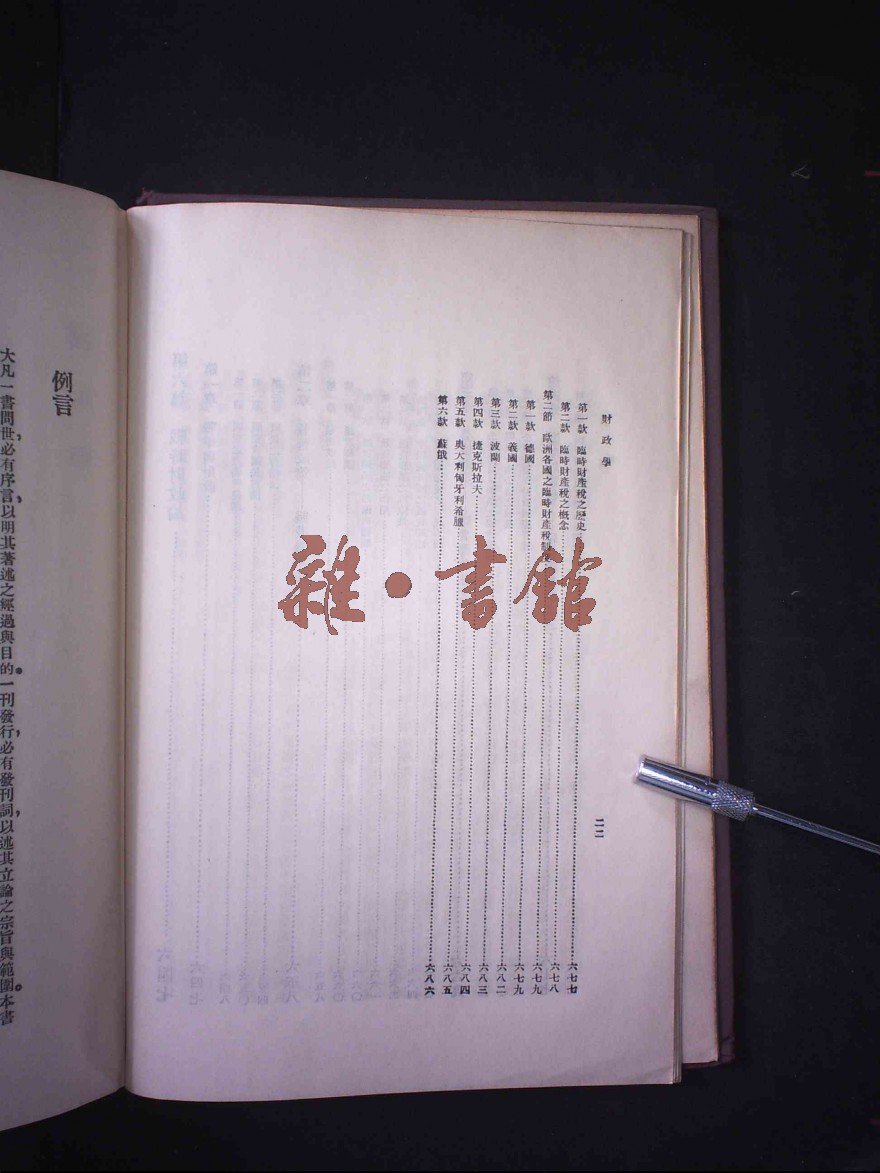 財政學
第一款 臨時財產稅之歷史……六七七
第二款 臨時財產稅之概念……六七八
第二節 歐洲各國之臨時財產稅制……六七九
第一款 德國……六七九
第二款 義國……六八二
第三款 波蘭……六八三
第四款 捷克斯拉夫……六八四
第五款 奧大利匈牙利希臘……六八五
第六款 蘇俄……六八六
二二
例言
大凡一書問世,必有序言,以明其著述之經過與目的。一刊發行,必有發刊詞,以述其立論之宗旨與範圍。本書
雜·書館